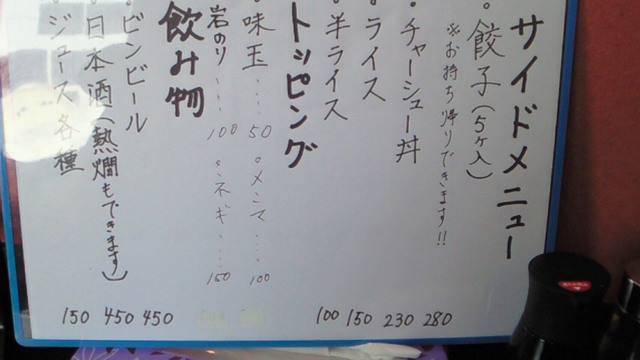 サイドメニュー
餃子(5ヶ入) 280
※お持ち帰りできます!!
チャーシュー丼 230
ライス 150
半ライス 100
トッピング
味玉…… 50
メンマ…… 100
岩のり…… 100
ネギ…… 150
飲み物
ビンビール 450
日本酒(熱燗もできます) 450
ジュース各種 150